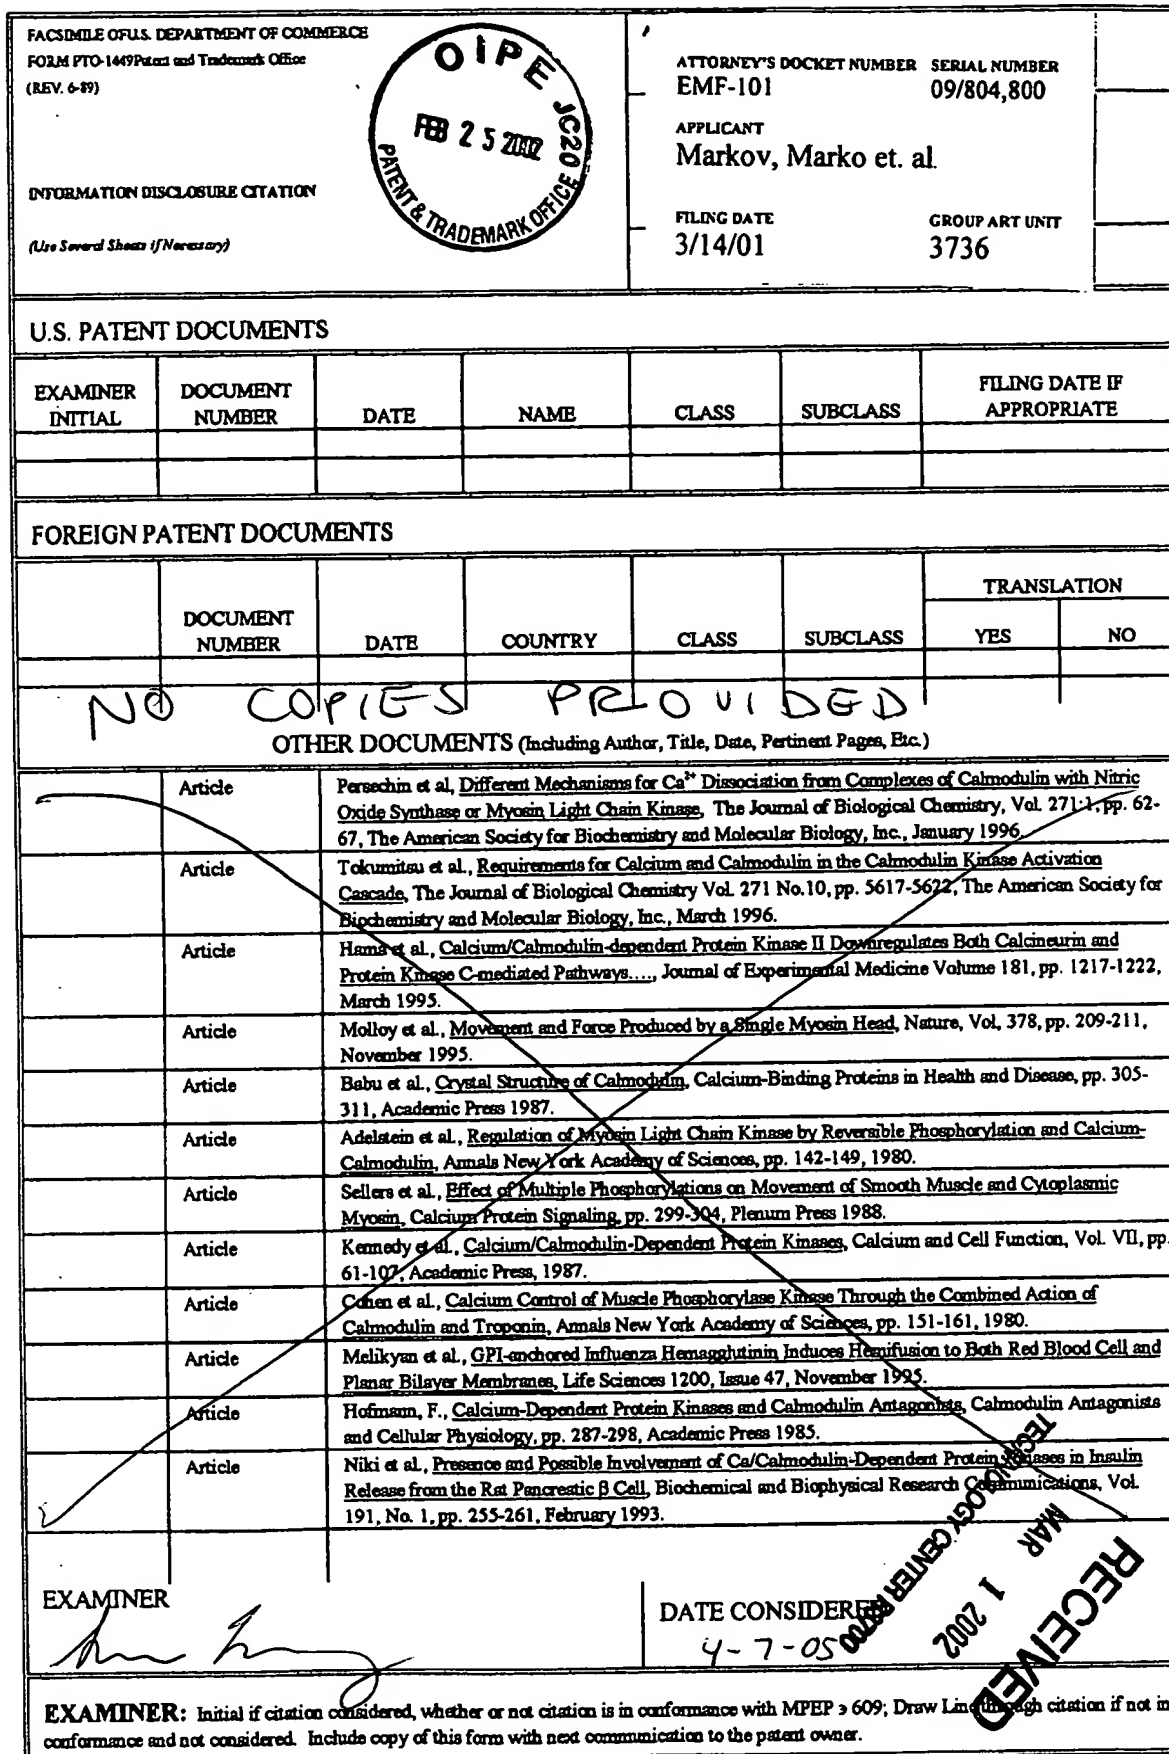 FACSIMILE OF U.S. DEPARTMENT OF COMMERCE
FORM PTO-1449 Patent and Trademark Office
(REV. 6-89)
INFORMATION DISCLOSURE CITATION
(Use Several Sheets if Necessary)
OIPE JC20
FEB 25 2002
PATENT & TRADEMARK OFFICE
ATTORNEY'S DOCKET NUMBER SERIAL NUMBER
EMF-101 09/804,800
APPLICANT
Markov, Marko et. al.
FILING DATE GROUP ART UNIT
3/14/01 3736
U.S. PATENT DOCUMENTS
EXAMINER INITIAL DOCUMENT NUMBER DATE NAME CLASS SUBCLASS FILING DATE IF APPROPRIATE
FOREIGN PATENT DOCUMENTS
TRANSLATION
DOCUMENT NUMBER DATE COUNTRY CLASS SUBCLASS YES NO
NO COPIES PROVIDED
OTHER DOCUMENTS (Including Author, Title, Date, Pertinent Pages, Etc.)
Article Persechin et al, Different Mechanisms for Ca²⁺ Dissociation from Complexes of Calmodulin with Nitric
Oxide Synthase or Myosin Light Chain Kinase, The Journal of Biological Chemistry, Vol. 271:1, pp. 62-
67, The American Society for Biochemistry and Molecular Biology, Inc., January 1996.
Article Tokumitsu et al., Requirements for Calcium and Calmodulin in the Calmodulin Kinase Activation
Cascade, The Journal of Biological Chemistry Vol. 271 No.10, pp. 5617-5622, The American Society for
Biochemistry and Molecular Biology, Inc., March 1996.
Article Hama et al., Calcium/Calmodulin-dependent Protein Kinase II Downregulates Both Calcineurin and
Protein Kinase C-mediated Pathways...., Journal of Experimental Medicine Volume 181, pp. 1217-1222,
March 1995.
Article Molloy et al., Movement and Force Produced by a Single Myosin Head, Nature, Vol, 378, pp. 209-211,
November 1995.
Article Babu et al., Crystal Structure of Calmodulin, Calcium-Binding Proteins in Health and Disease, pp. 305-
311, Academic Press 1987.
Article Adelstein et al., Regulation of Myosin Light Chain Kinase by Reversible Phosphorylation and Calcium-
Calmodulin, Annals New York Academy of Sciences, pp. 142-149, 1980.
Article Sellers et al., Effect of Multiple Phosphorylations on Movement of Smooth Muscle and Cytoplasmic
Myosin, Calcium Protein Signaling, pp. 299-304, Plenum Press 1988.
Article Kennedy et al., Calcium/Calmodulin-Dependent Protein Kinases, Calcium and Cell Function, Vol. VII, pp.
61-107, Academic Press, 1987.
Article Cohen et al., Calcium Control of Muscle Phosphorylase Kinase Through the Combined Action of
Calmodulin and Troponin, Annals New York Academy of Sciences, pp. 151-161, 1980.
Article Melikyan et al., GPI-anchored Influenza Hemagglutinin Induces Hemifusion to Both Red Blood Cell and
Planar Bilayer Membranes, Life Sciences 1200, Issue 47, November 1995.
Article Hofmann, F., Calcium-Dependent Protein Kinases and Calmodulin Antagonists, Calmodulin Antagonists
and Cellular Physiology, pp. 287-298, Academic Press 1985.
Article Niki et al., Presence and Possible Involvement of Ca/Calmodulin-Dependent Protein Kinases in Insulin
Release from the Rat Pancreatic β Cell, Biochemical and Biophysical Research Communications, Vol.
191, No. 1, pp. 255-261, February 1993.
RECEIVED
MAR 1 2002
TECHNOLOGY CENTER R3700
EXAMINER
DATE CONSIDERED
4-7-05
EXAMINER: Initial if citation considered, whether or not citation is in conformance with MPEP э 609; Draw Line through citation if not in
conformance and not considered. Include copy of this form with next communication to the patent owner.